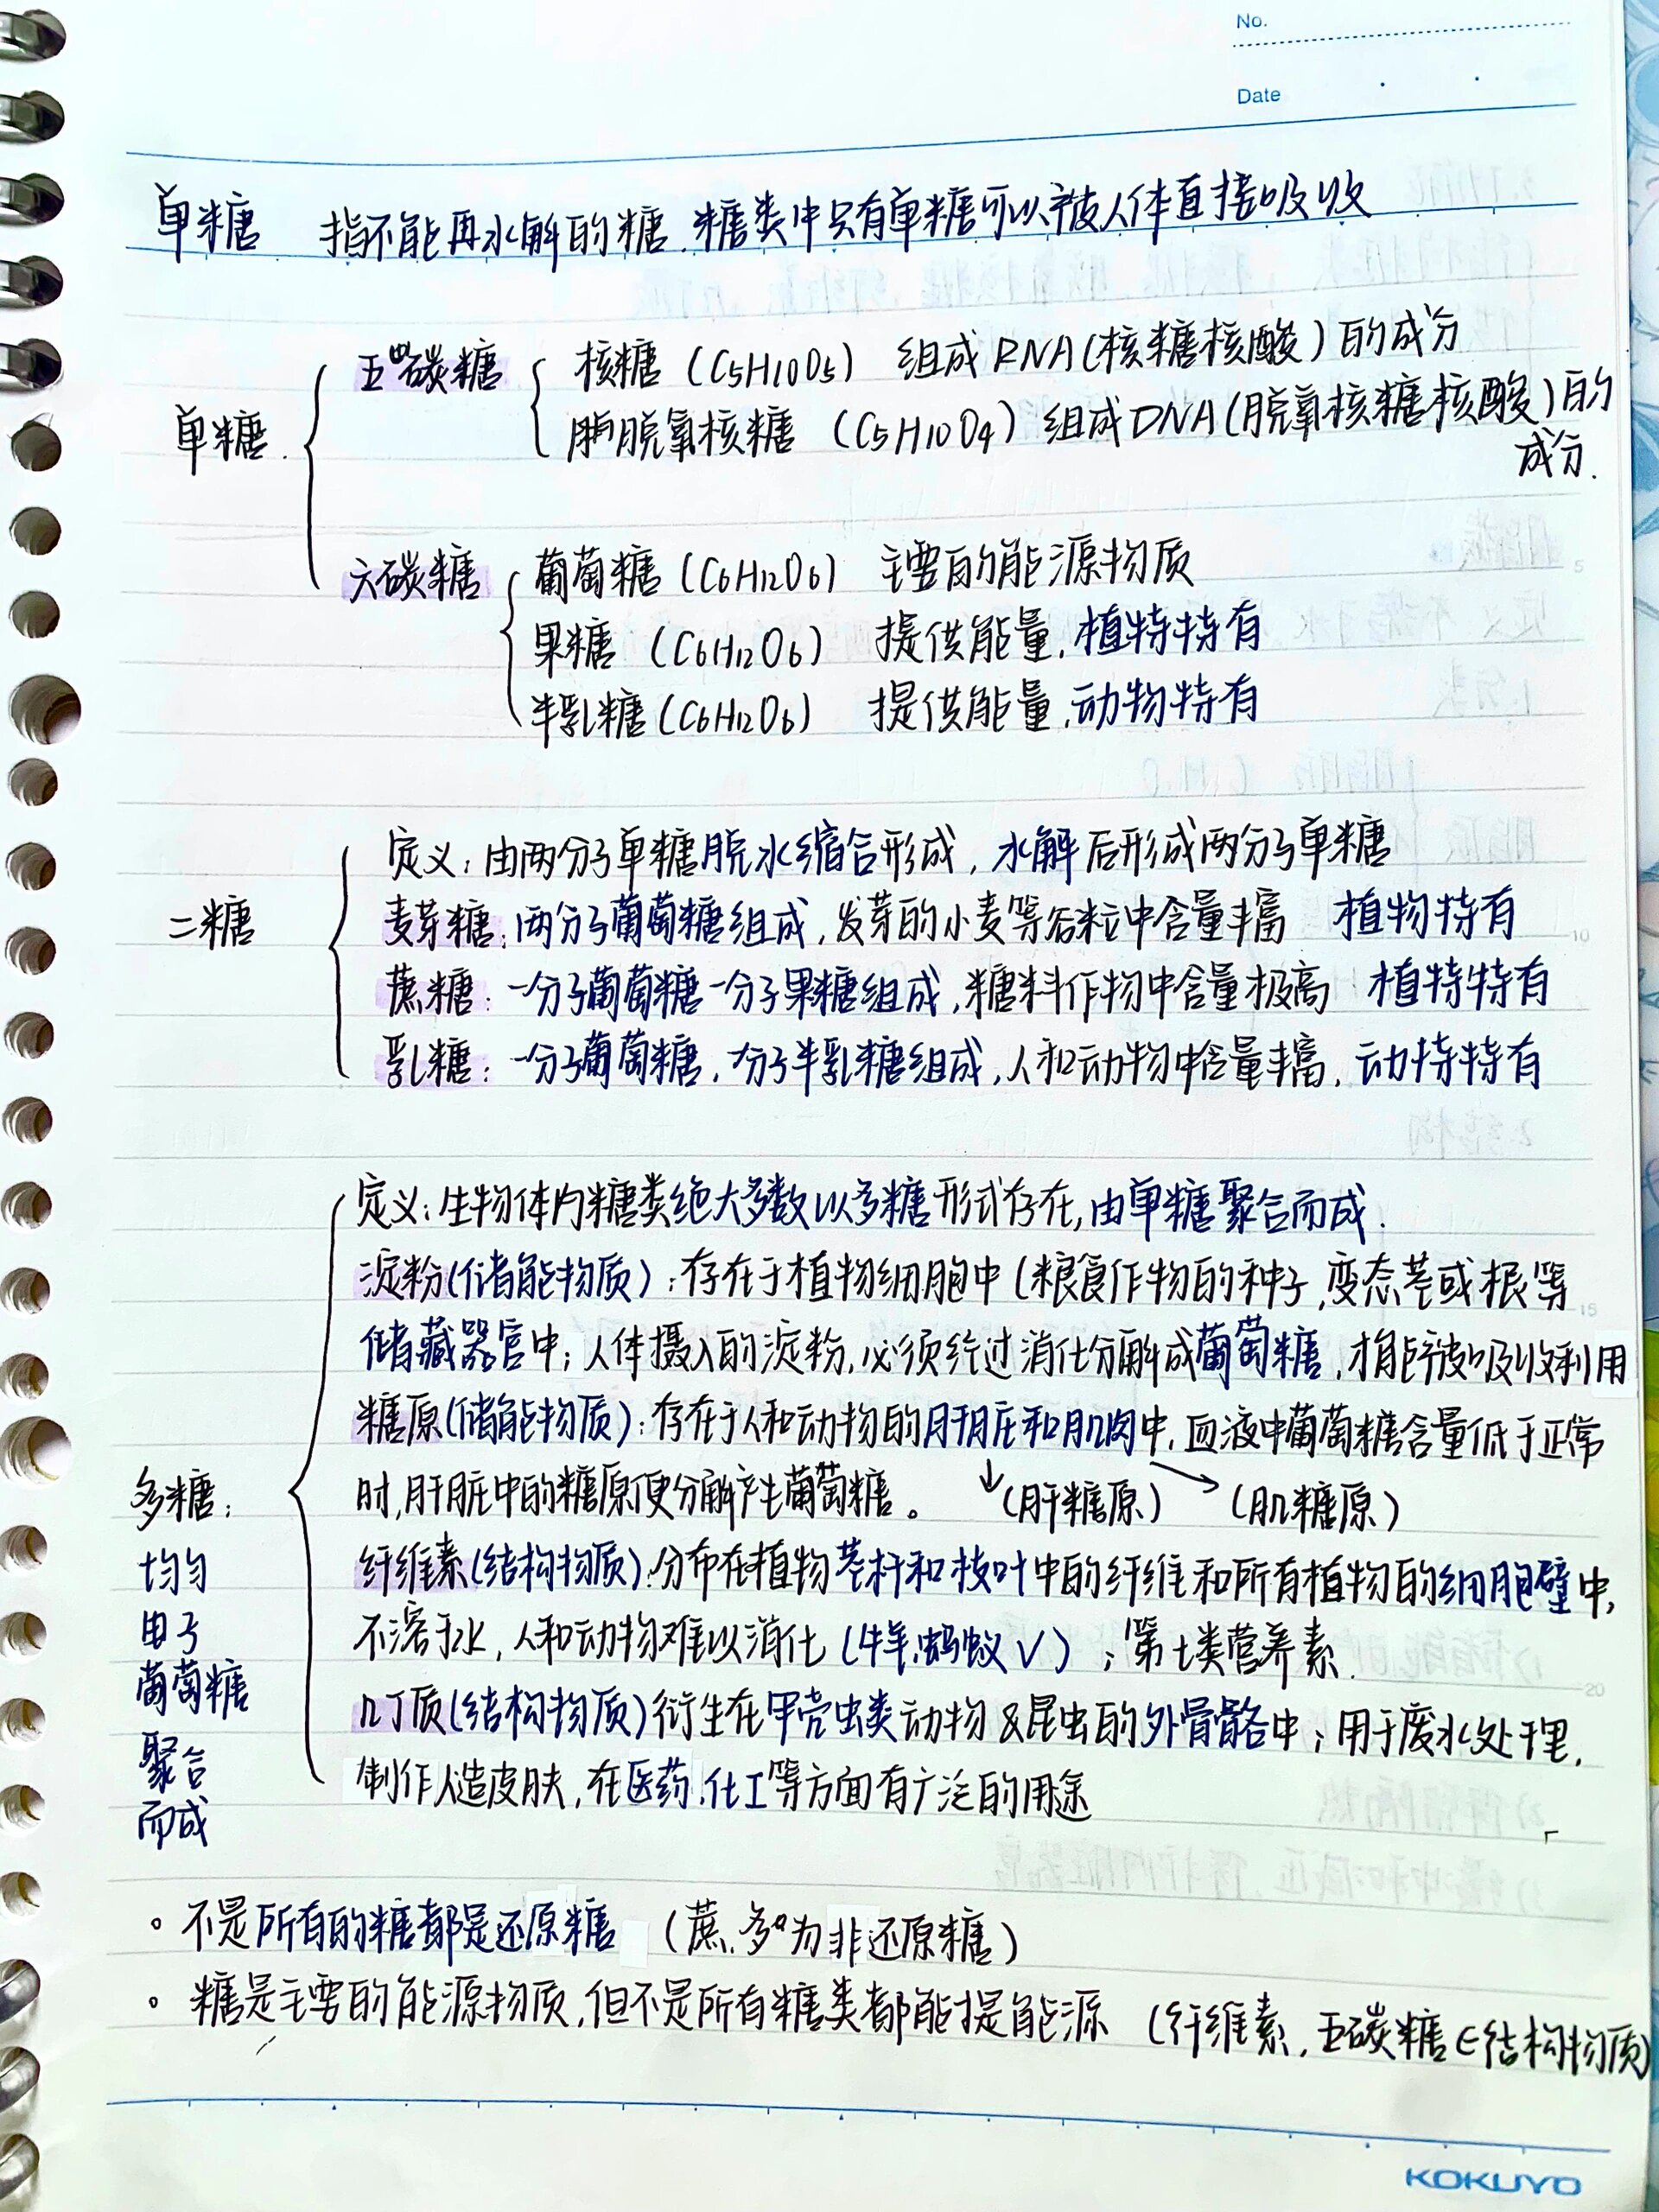 No.
Date
单糖 指不能再水解的糖.糖类中只有单糖可以被人体直接吸收
五碳糖 核糖（C5H10O5） 组成RNA（核糖核酸）的成分
单糖. 脱氧核糖（C5H10O4） 组成DNA（脱氧核糖核酸）的
成分.
六碳糖 葡萄糖（C6H12O6） 主要的能源物质
果糖（C6H12O6） 提供能量,植特特有
半乳糖（C6H12O6） 提供能量,动物特有
定义:由两分子单糖脱水缩合形成,水解后形成两分子单糖
二糖 麦芽糖:两分子葡萄糖组成,发芽的小麦等谷粒中含量丰富 植物特有
蔗糖:一分子葡萄糖一分子果糖组成,糖料作物中含量极高 植特特有
乳糖:一分子葡萄糖,分子半乳糖组成,人和动物中含量丰富,动特特有
定义:生物体内糖类绝大多数以多糖形式存在,由单糖聚合而成.
淀粉(储能物质):存在于植物细胞中(粮食作物的种子,变态茎或根等
储藏器官中;人体摄入的淀粉,必须经过消化分解成葡萄糖,才能被吸收利用
糖原(储能物质):存在于人和动物的肝脏和肌肉中,血液中葡萄糖含量低于正常
时,肝脏中的糖原便分解产生葡萄糖。 ↓(肝糖原) ↘(肌糖原)
多糖:
均匀
由于
葡萄糖
聚合
而成
纤维素(结构物质):分布在植物茎杆和枝叶中的纤维和所有植物的细胞壁中,
不溶于水,人和动物难以消化(牛羊,蚂蚁√);第七类营养素.
几丁质(结构物质)衍生在甲壳虫类动物&昆虫的外骨骼中;用于废水处理,
制作人造皮肤,在医药,化工等方面有广泛的用途
。不是所有的糖都是还原糖 (蔗.多为非还原糖)
。糖是主要的能源物质,但不是所有糖类都能提能源 (纤维素,五碳糖∈结构物质)
KOKUYO